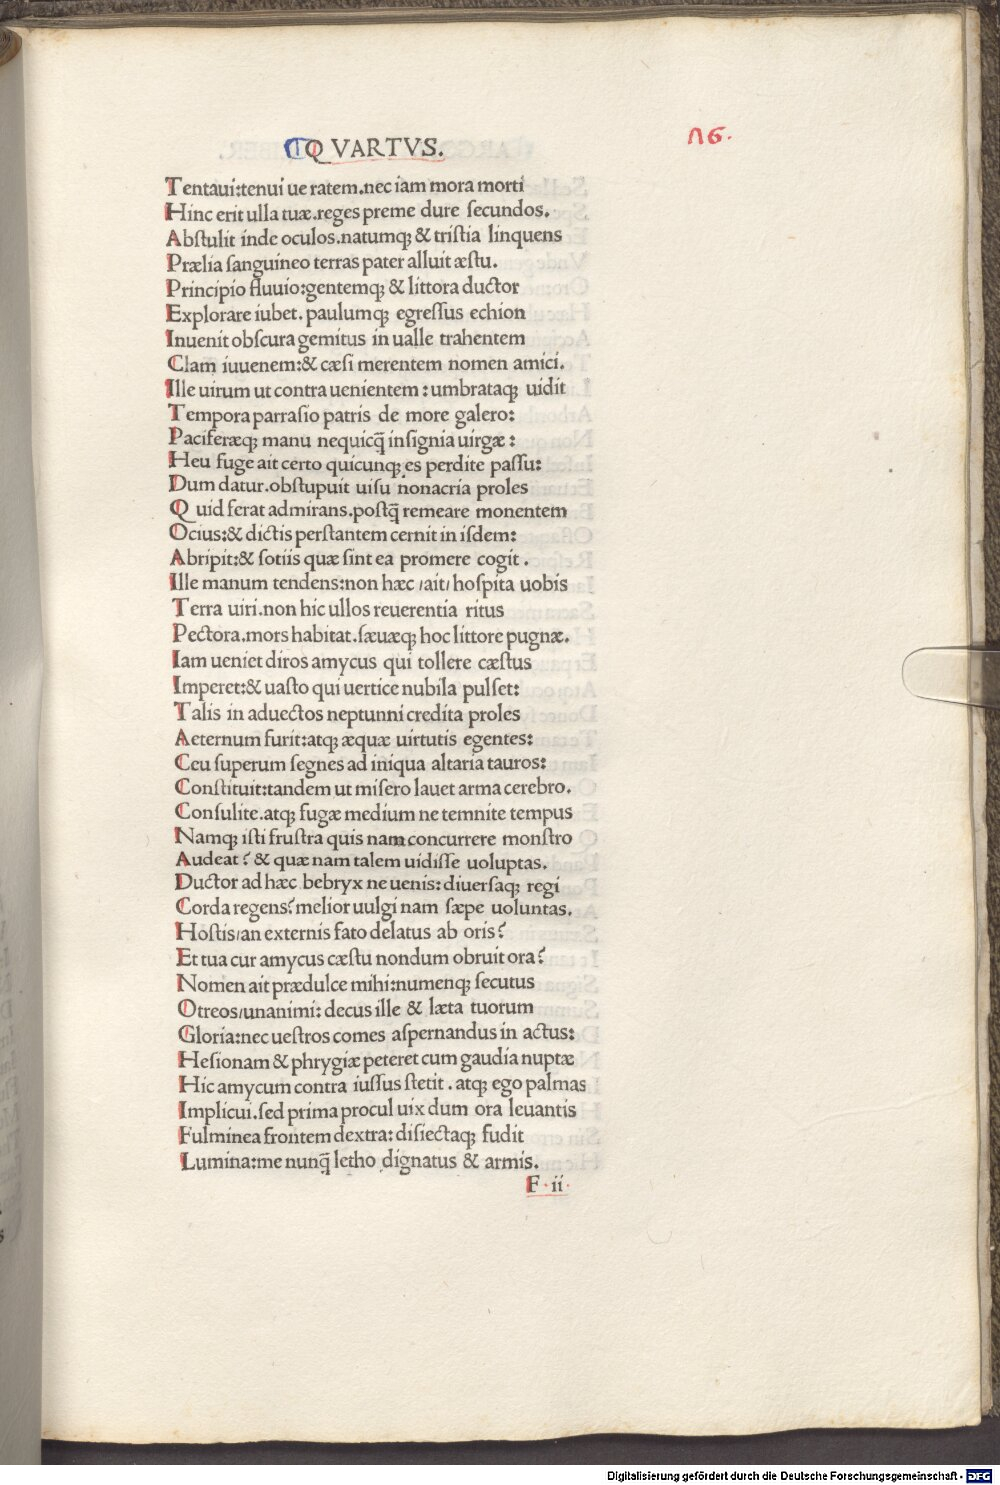 QVARTVS.
Λ6.
Tentaui:tenui ue ratem.nec iam mora morti
Hinc erit ulla tuæ.reges preme dure secundos.
Abstulit inde oculos.natumq; & tristia linquens
Prælia sanguineo terras pater alluit æstu.
Principio fluuio:gentemq; & littora ductor
Explorare iubet. paulumq; egressus echion
Inuenit obscura gemitus in ualle trahentem
Clam iuuenem:& cæsi merentem nomen amici.
Ille uirum ut contra uenientem : umbrataq; uidit
Tempora parrasio patris de more galero:
Paciferæq; manu nequicq̃ insignia uirgæ :
Heu fuge ait certo quicunq; es perdite passu:
Dum datur.obstupuit uisu nonacria proles
Quid ferat admirans.postq̃ remeare monentem
Ocius:& dictis perstantem cernit in isdem:
Abripit:& sotiis quæ sint ea promere cogit .
Ille manum tendens:non hæc /ait/ hospita uobis
Terra uiri.non hic ullos reuerentia ritus
Pectora.mors habitat.sæuæq; hoc littore pugnæ.
Iam ueniet diros amycus qui tollere cæstus
Imperet:& uasto qui uertice nubila pulset:
Talis in aduectos neptunni credita proles
Aeternum furit:atq; æquæ uirtutis egentes:
Ceu superum segnes ad iniqua altaria tauros:
Constituit:tandem ut misero lauet arma cerebro.
Consulite.atq; fugæ medium ne temnite tempus
Namq; isti frustra quis nam concurrere monstro
Audeat? & quæ nam talem uidisse uoluptas.
Ductor ad hæc bebryx ne uenis: diuersaq; regi
Corda regens? melior uulgi nam sæpe uoluntas.
Hostis/an externis fato delatus ab oris?
Et tua cur amycus cæstu nondum obruit ora?
Nomen ait prædulce mihi:numenq; secutus
Otreos/unanimi: decus ille & læta tuorum
Gloria:nec uestros comes aspernandus in actus:
Hesionam & phrygiæ peteret cum gaudia nuptæ
Hic amycum contra iussus stetit . atq; ego palmas
Implicui.sed prima procul uix dum ora leuantis
Fulminea frontem dextra: disiectaq; fudit
Lumina:me nunq̃ letho dignatus & armis.
F ii
Digitalisierung gefördert durch die Deutsche Forschungsgemeinschaft - DFG